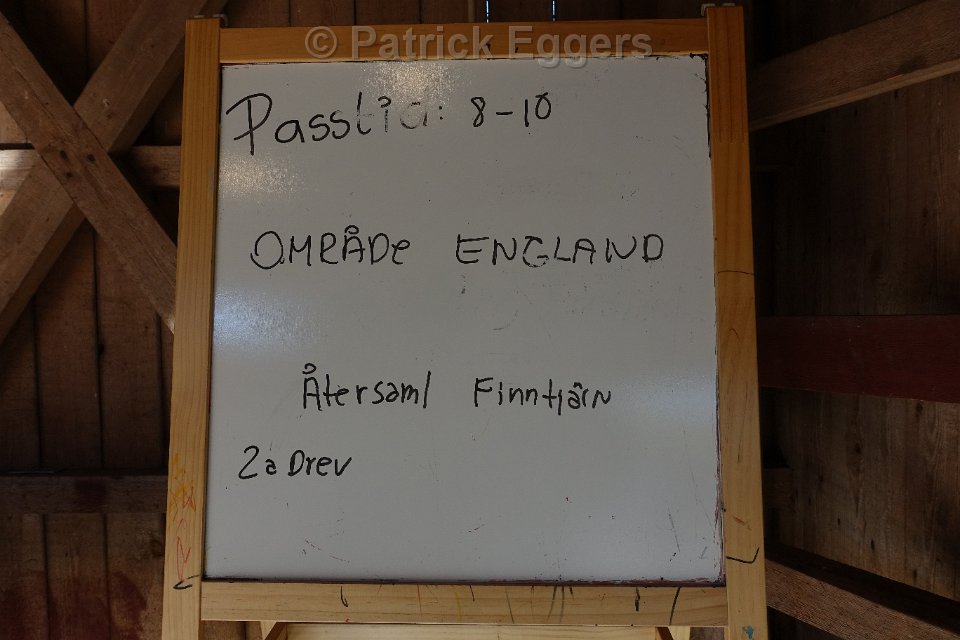 © Patrick Eggers
Passtid: 8-10
OMRÅDe ENGLAND
Återsaml Finntjärn
2a Drev